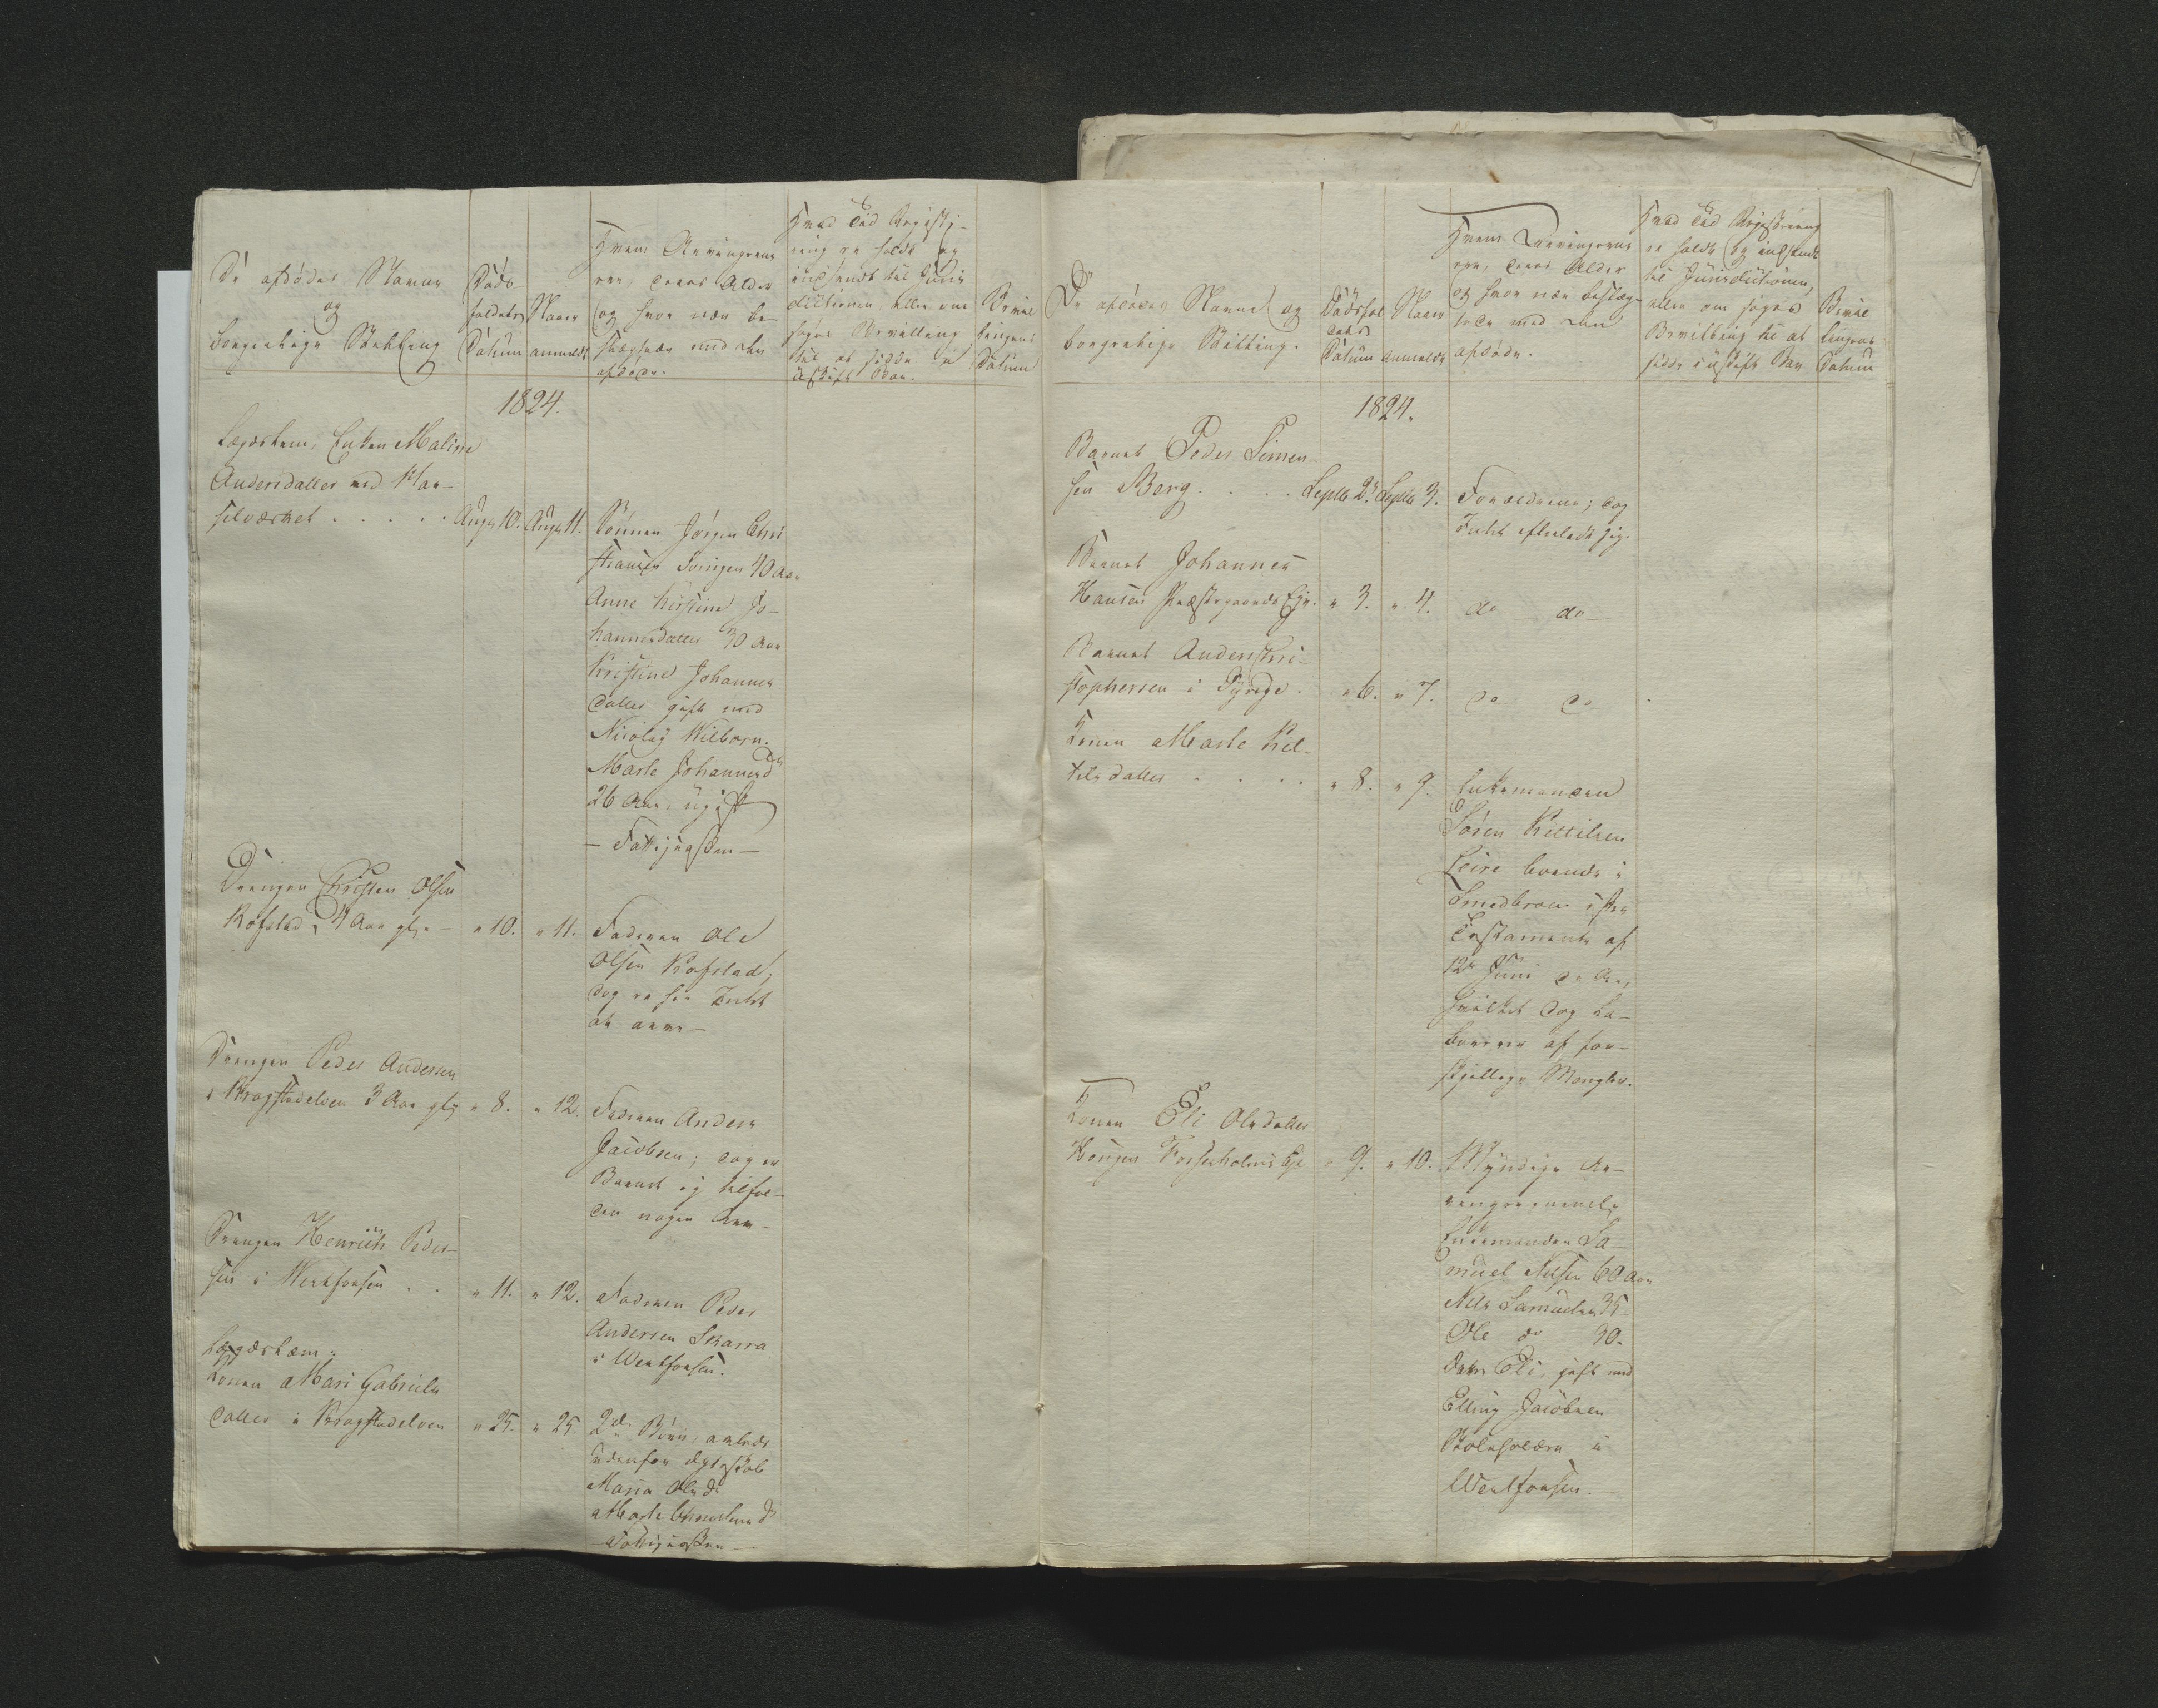 De afdødes Navne
og
borgerlige Stilling
Døds-
faldets
Datum
Naar
anmeldt
Hvem Arvingerne
ere, deres Alder
og hvor nær be-
slægtede med den
afdøde.
Hvad Tid Registe-
ring er holdt og
indsendt til Juris
dictionen, eller om
søges Bevilling
til at sidde i
uskiftet Boe.
Bevil
lingens
Datum
1824.
Lægdslem, Enken Maline
Andersdatter ved Mar-
selværket . . . . .
Aug. 10.
Aug. 11.
Sønnen Jørgen Chri
stiansen Svingen 40 Aar
Anne Kirstine Jo-
hannesdatter 30 Aar
Kristine Johannes
datter gift med
Nicolay Wilborn.
Marte Johannesdr
26 Aar, ugift
- Fattigkassen -
Drengen Christen Olsen
Rofstad, 4 Aar gl. -
" 10.
" 11.
Faderen Ole
Olsen Rofstad,
dog er her Intet
at arve -
Drengen Peder Andersen
i Kragstadelven 3 Aar gl.
" 8.
" 12.
Faderen Anders
Jacobsen; dog er
Barnet ej tilfal-
den nogen Arv -
Drengen Henrich Peder-
sen i Westfossen . .
" 11.
" 12.
Faderen Peder
Andersen Skarra
i Westfossen.
Lægdslem,
Konen Mari Gabriels
datter i Kragstadelven
" 25.
" 25.
2de Børn, avlede
udenfor Ægteskab
Maria Olsdr
Marte Christensdr
- Fattigkassen -
De afdødes Navne og
borgerlige Stilling.
Dødsfal
dets
Datum
Naar
anmeldt
Hvem Arvingerne
ere, deres Alder
og hvor nær beslæg-
tede med den
afdøde.
Hvad Tid Registrering
er holdt og indsendt
til Jurisdictionen,
eller om søges
Bevilling til at
sidde i uskiftet Boe
Bevil
lingens
Datum
1824.
Barnet Peder Simen-
sen Berg. . . .
Septb 2.
Septb 3.
Forældrene; dog
Intet efterladt sig.
Barnet Johannes
Hansen Præstegaards Eje.
" 3.
" 4.
do do -
Barnet Anders Chri-
stophersen i Tyrege .
" 6.
" 7.
do do -
Konen Marte Kit-
tilsdatter . . . .
" 8.
" 9.
Enkemanden
Søren Kittilsen
Leire boende i
Smedbraa efter
Testamente af
12te Juni d. A.,
hvilket dog la-
borerer af for-
skjellige Mangler.
Konen Eli Olsdatter
Haugen Fossesholms Eje
" 9.
" 10.
Myndige Ar-
vinger nemlig
Enkemanden Sa-
muel Nilsen 60 Aar
Nils Samuelsen 35
Ole do 30.
Datter Eli, gift med
Elling Jacobsen
Skoleholder i
Westfossen.